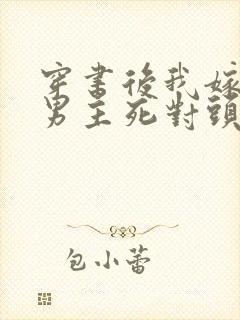 穿書後我嫁
男主死對頭
包小蕾